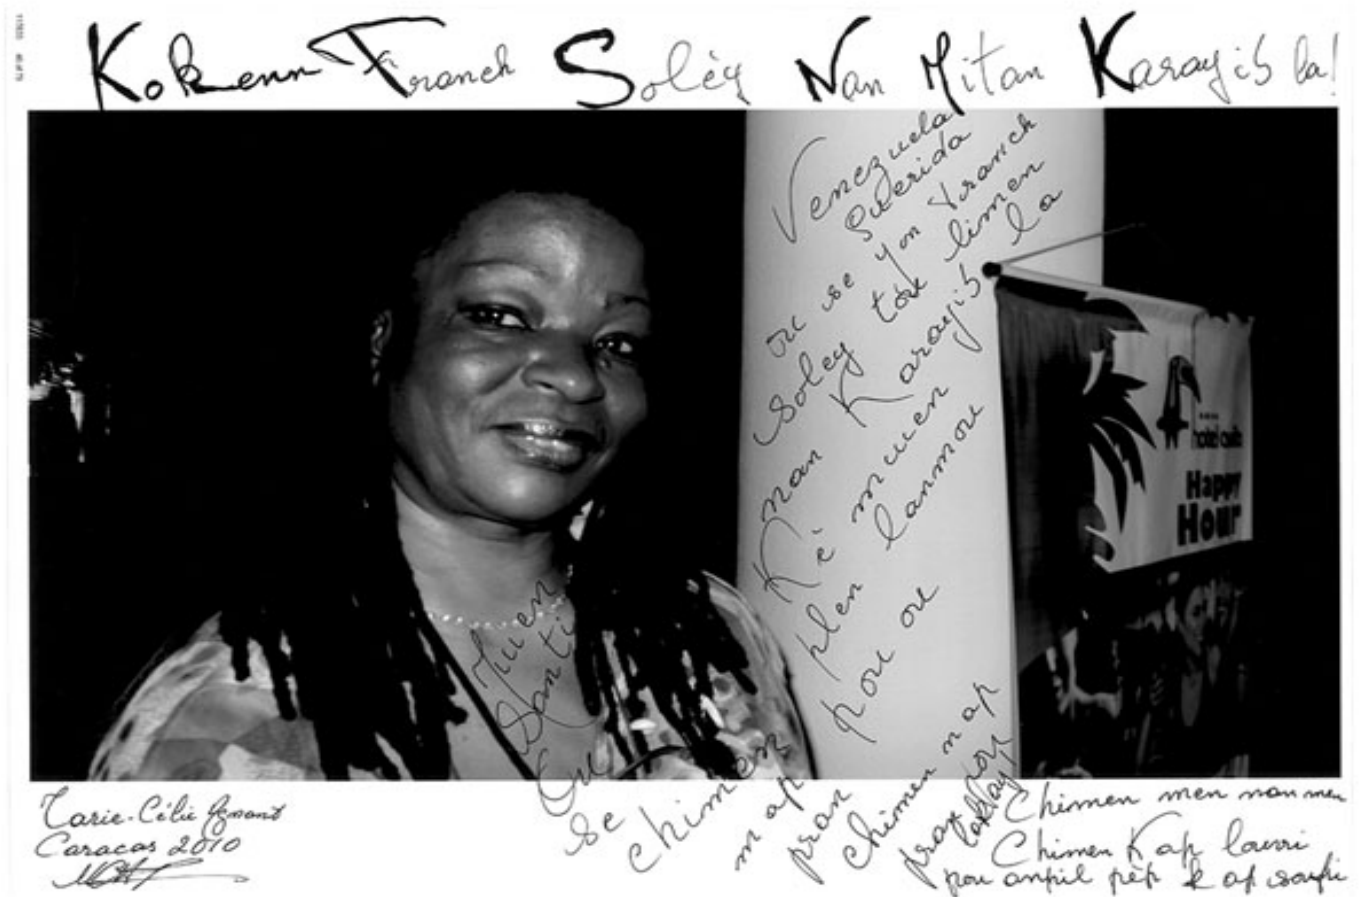 Kokenn Tranch Solèy Nan Mitan Karayib la!
Venezuela
Querida
ou se yon tranch
Soley tou limen
nan Karayib la
Kè mwen
plen lanmou
pou ou
Mwen
Santi
Ou
se
chimen
m ap
pran
Chimen n ap
pran pou
Chimen men nan men
Chimen k ap louvri
pou anpil pèp k ap soufri
Marie-Célie Agnant
Caracas 2010
hotel
Happy
Hour